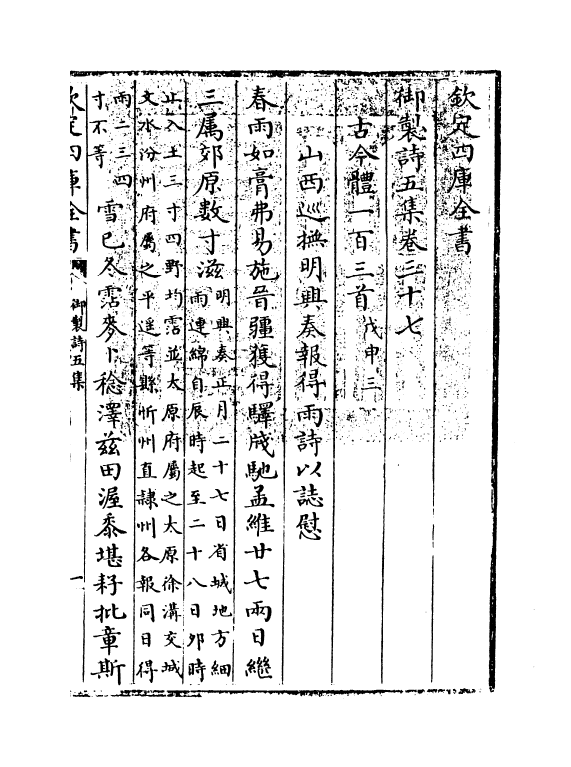 欽定四庫全書
御製詩五集卷三十七
古今體一百三首戊申三
山西巡撫明興奏報得雨詩以誌慰
春雨如膏弗易施晉疆獲得驛牋馳孟維廿七兩日繼
三屬郊原數寸滋明興奏正月二十七日省城地方細
雨連綿自辰時起至二十八日夘時
止入土三寸四野均霑並太原府屬之太原徐溝交城
文水汾州府屬之平遥等縣忻州直隸州各報同日得
雨二三四
寸不等雪已冬霑麥卜稔澤兹田渥黍堪耔批章斯
欽定四庫全書
御製詩五集
一